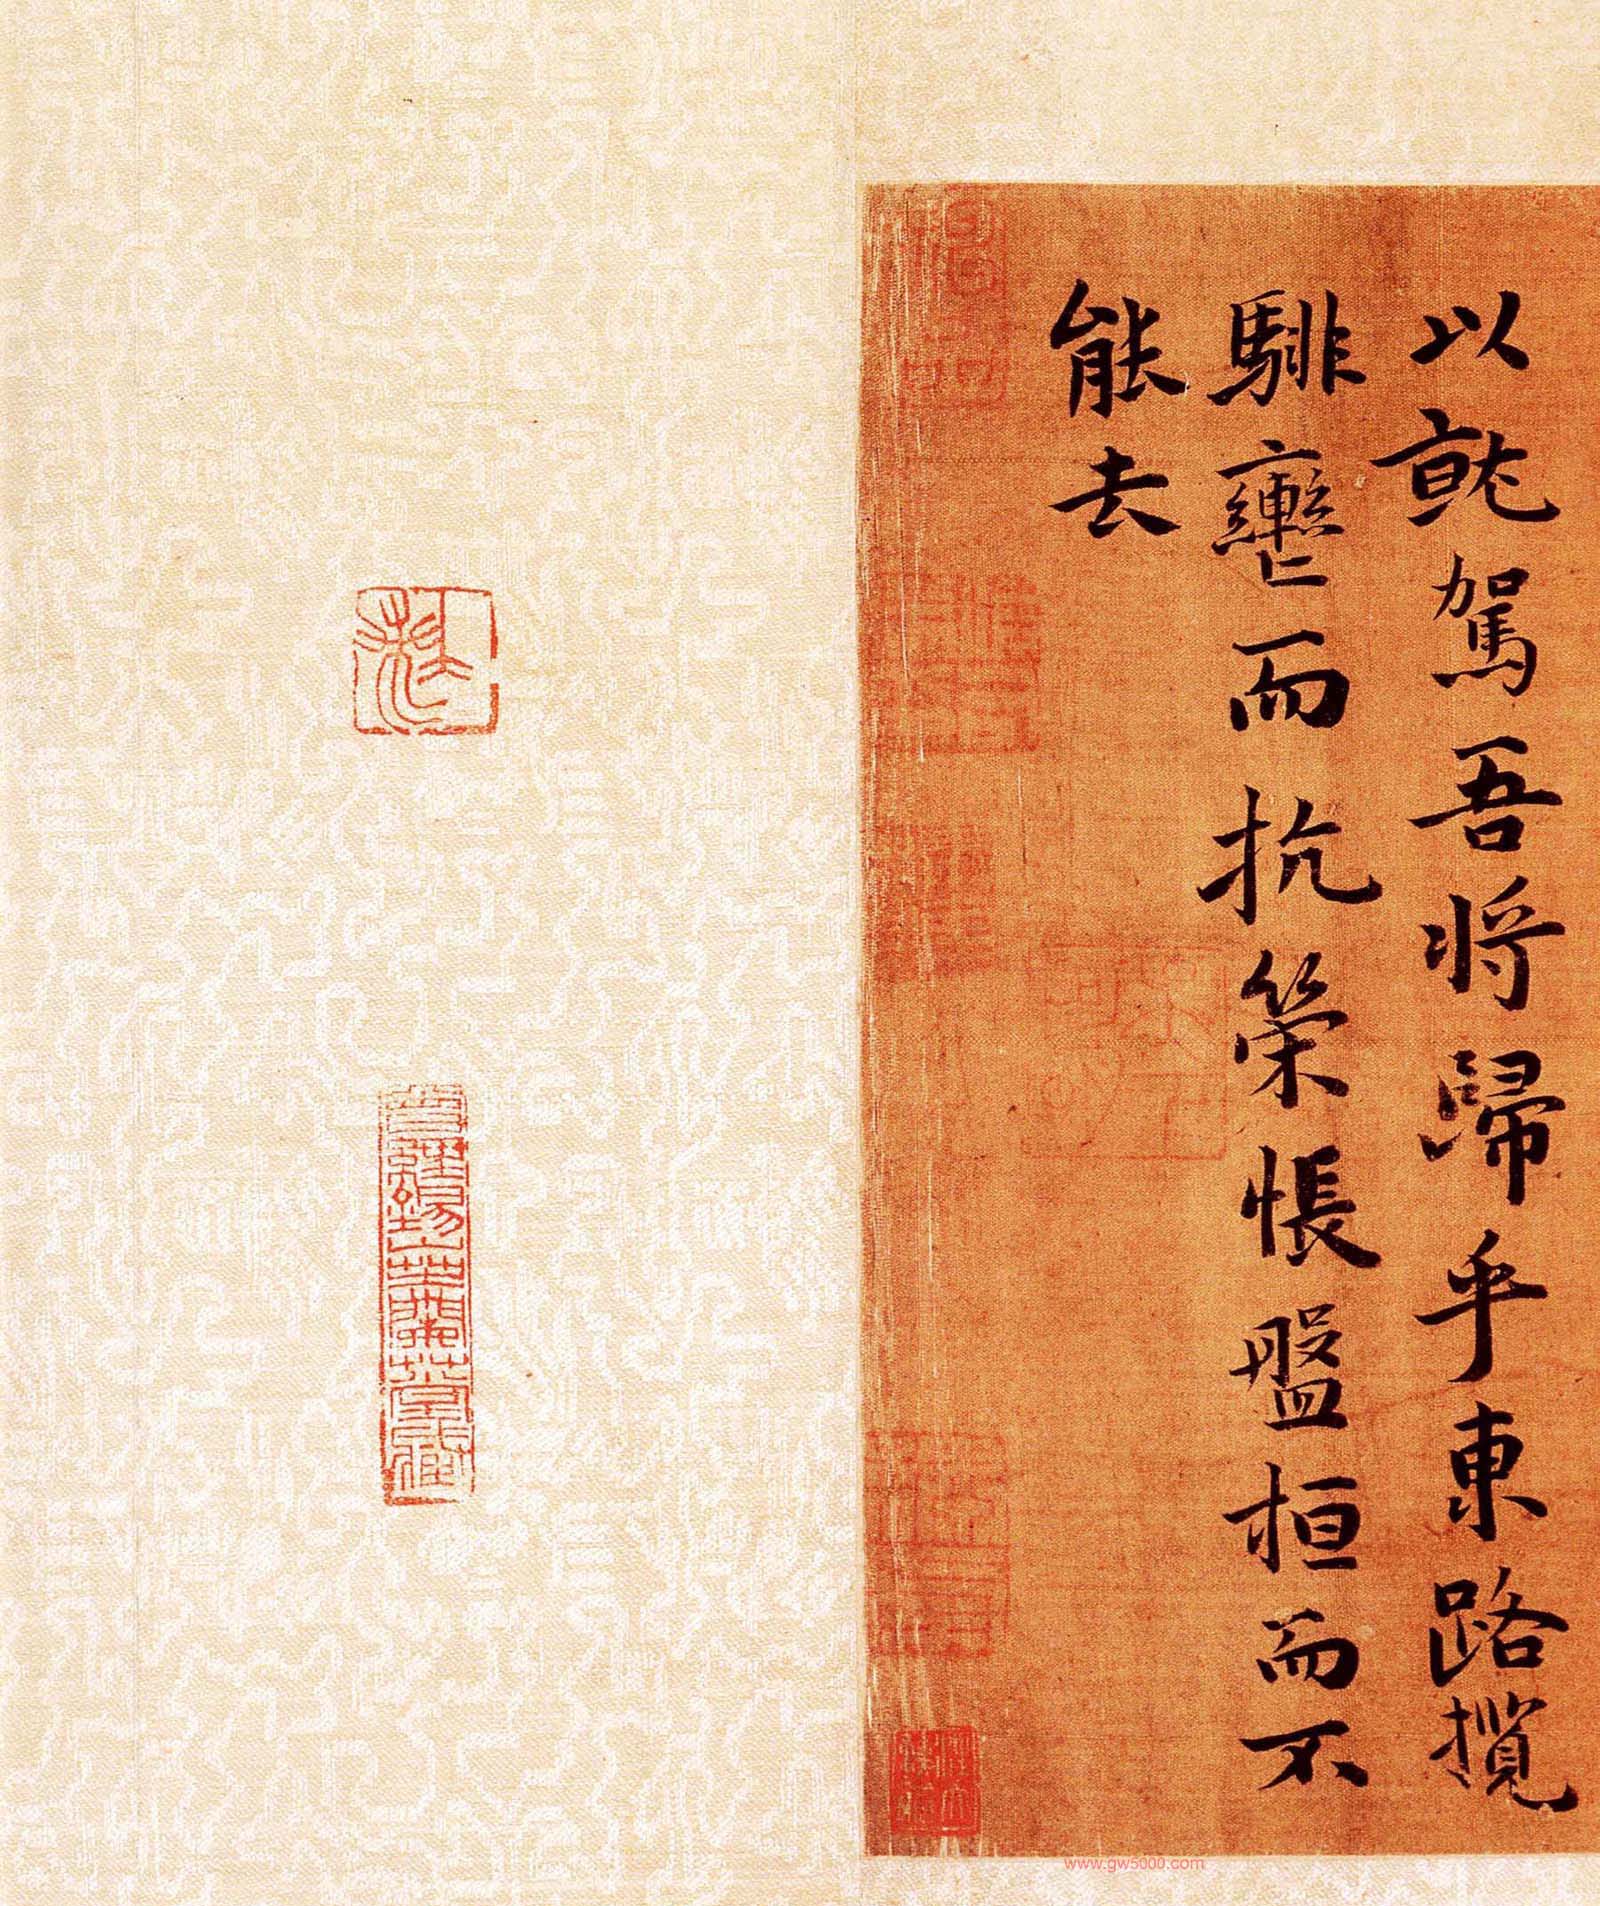 以就駕吾將歸乎東路攬
騑轡而抗策悵盤桓而不
能去
www.gw5000.com